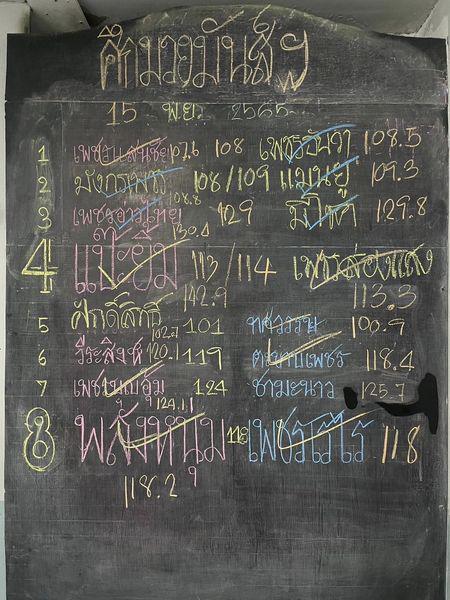 ศึกมวยมันส์ฯ
15 พ.ย. 2565
1 เพชรแสนชัย 107.6 108 เพชรธันวา 108.5
2 มังกรเพชร 108/109 แมนยู 109.3
108.8
3 เพชรอ่าวไทย 129 มีโชค 129.8
130.4
4 แป๊ะยิ้ม 113/114 เพชรส่องแสง
142.9 113.3
5 ศักดิ์สิทธิ์ 102.7 101 ทศวรรษ 100.9
6 วีระสิงห์ 120.1 119 ตะบานเพชร 118.4
7 124 ชามะนาว 125.7
124.1
8 พลังหนุ่ม 118 เพชรเรไร 118
118.2